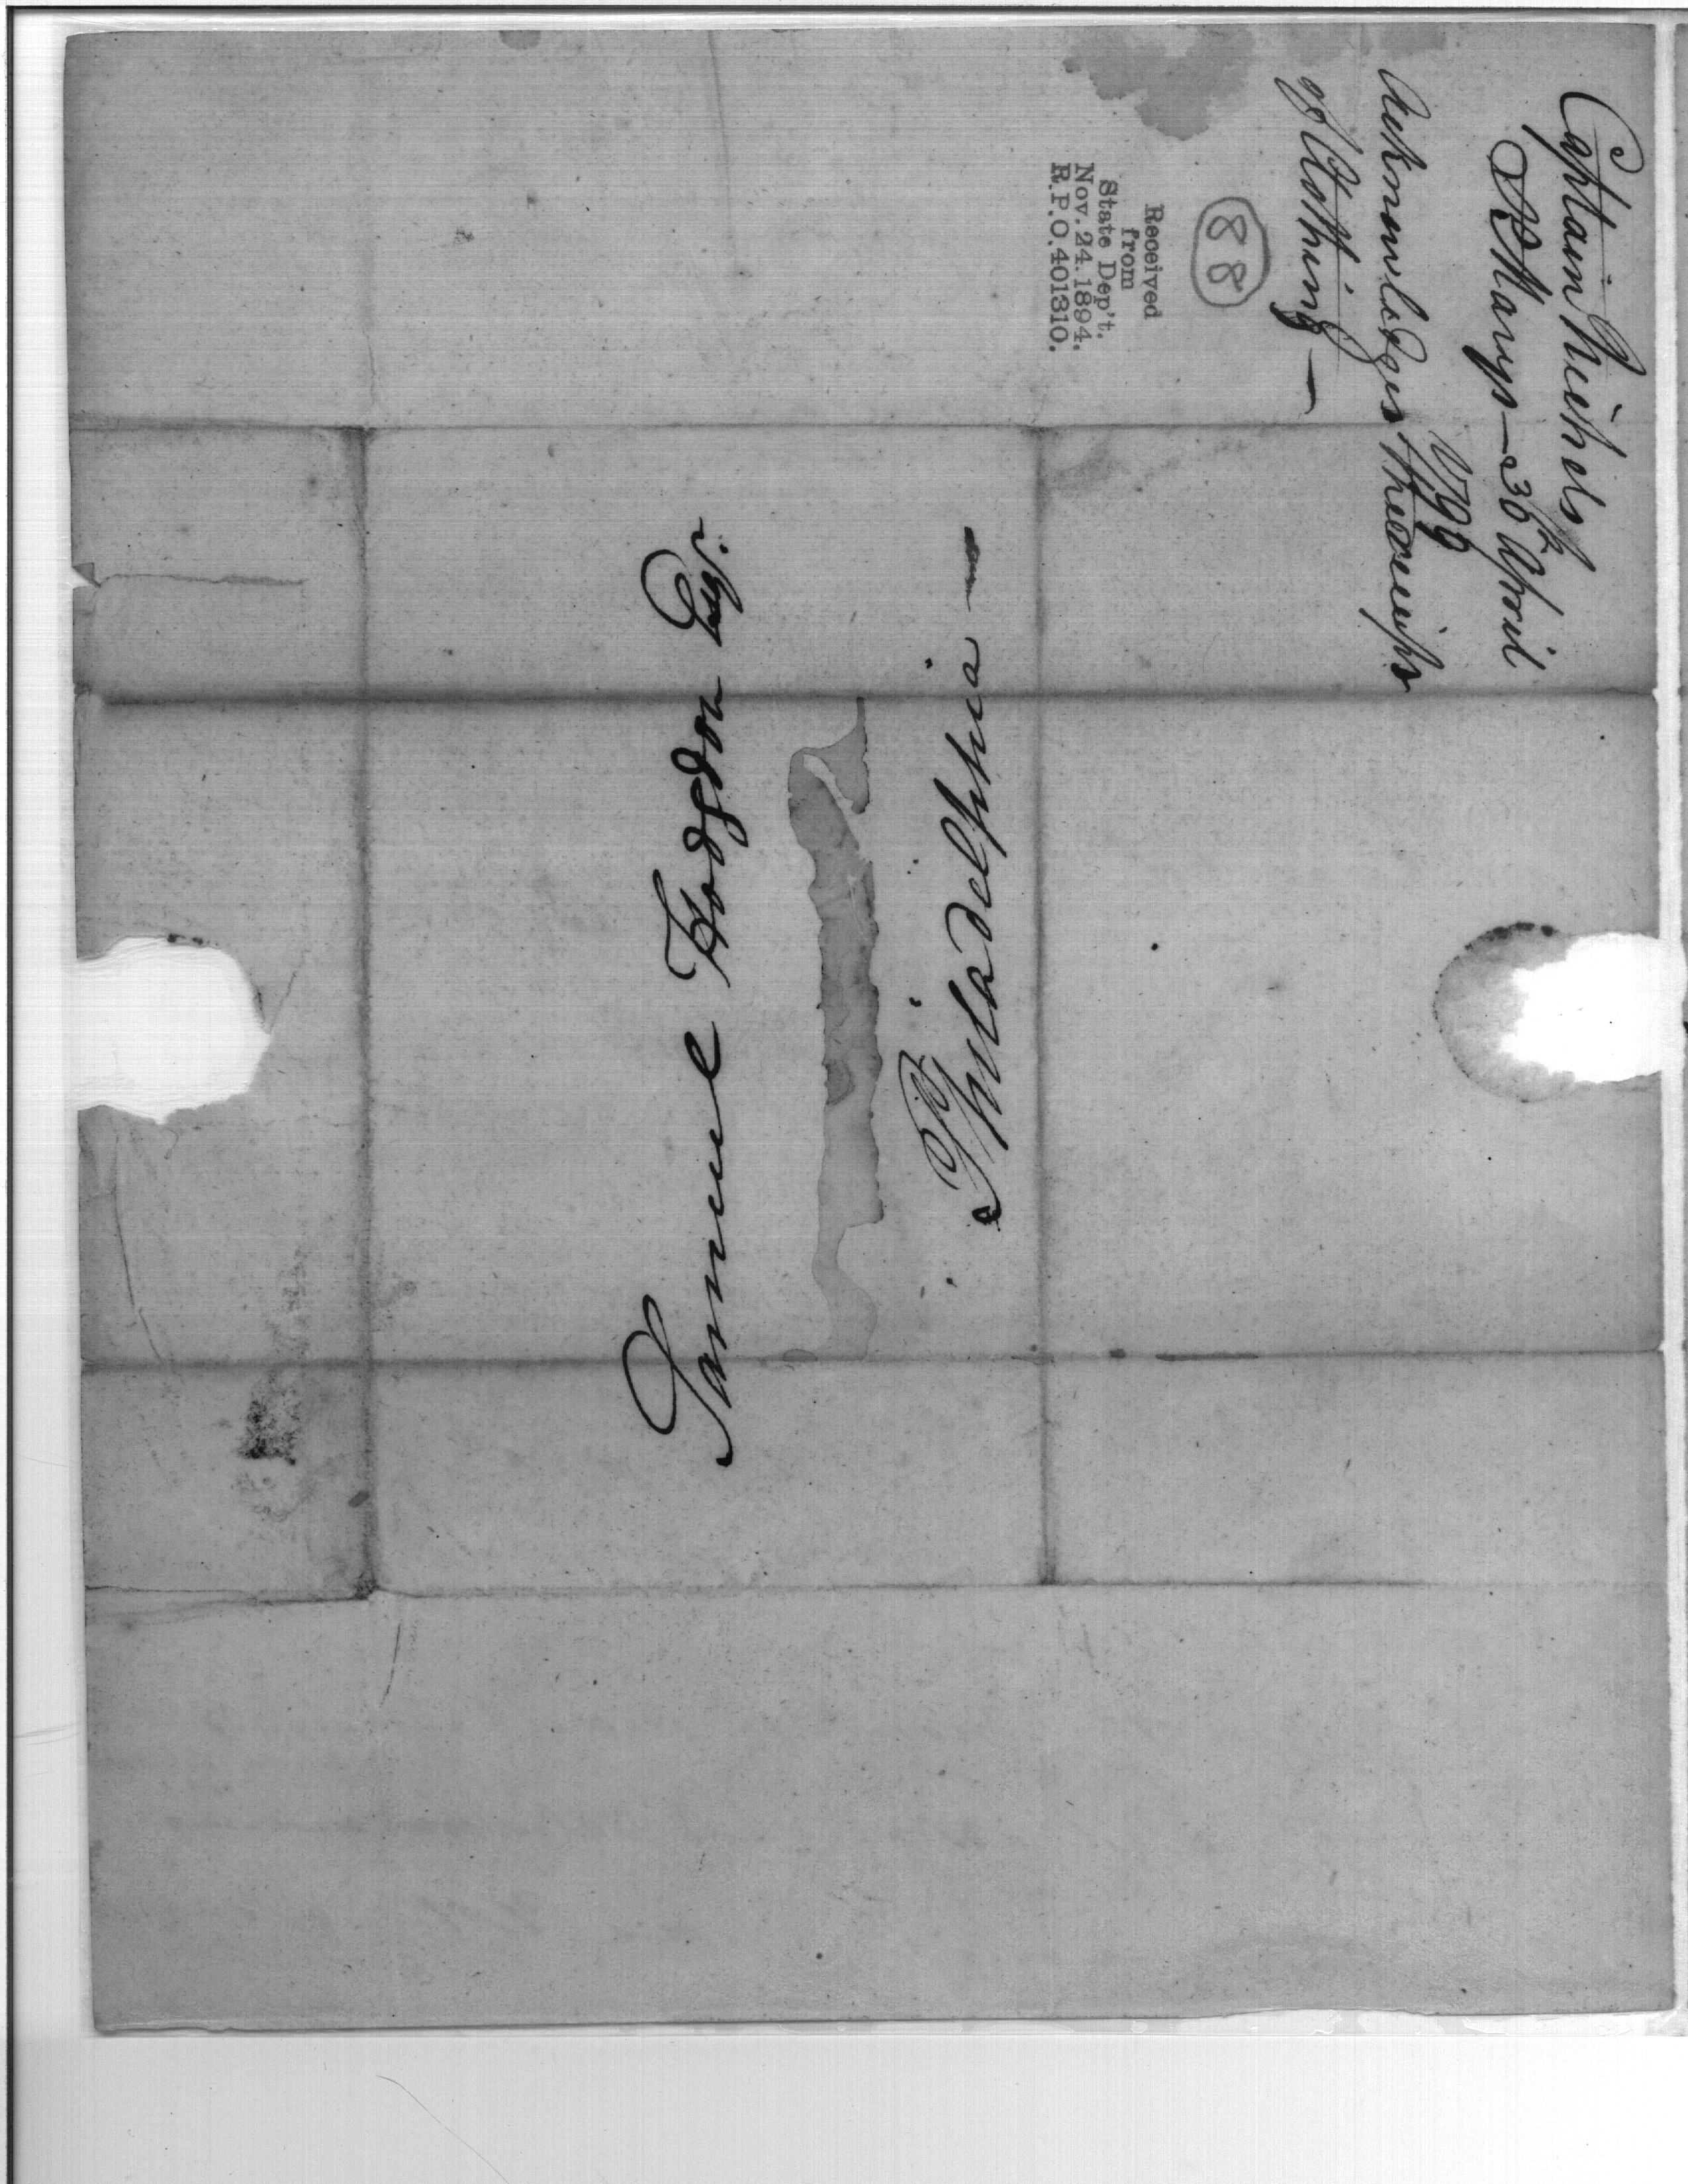 Captain
St Marys — 30th April
1792
Acknowledges the receipt
of Clothing —
88
Received
from
State Dep't.
Nov. 24. 1894.
R.P.O. 401310.
Samuel Hodgdon Esqr.
Philadelphia —